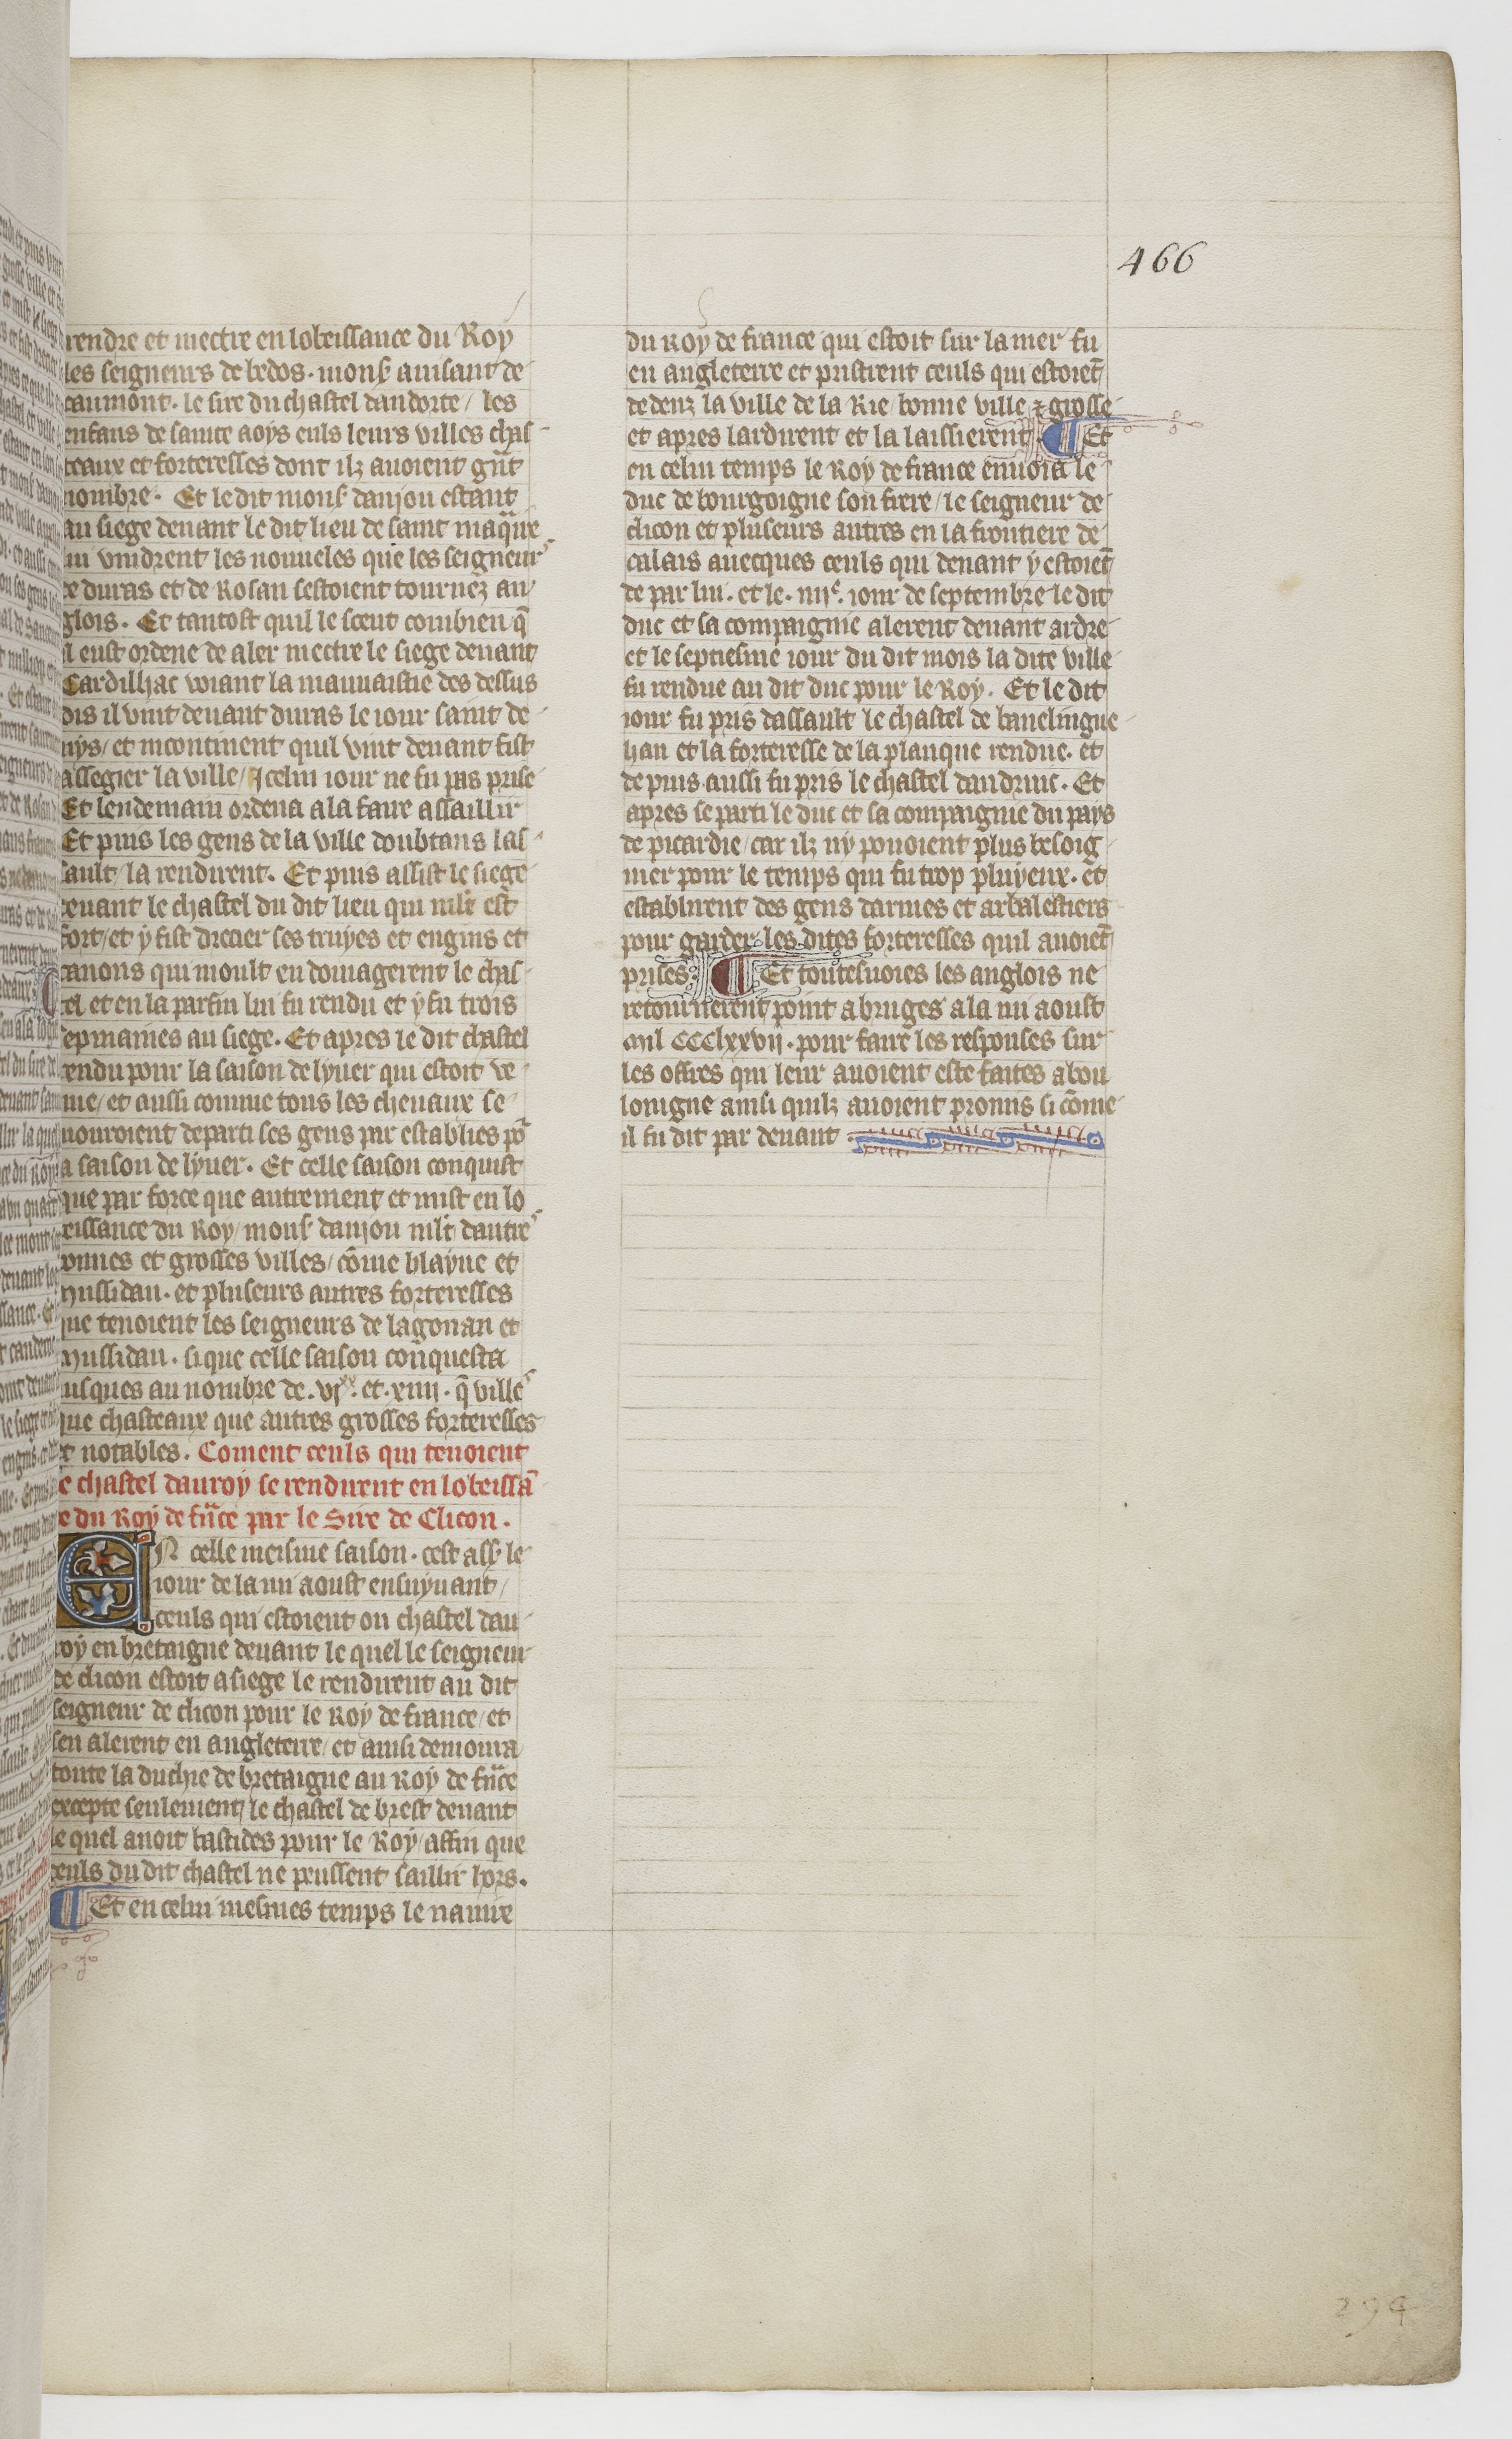 466
rendre et mectre en lobeissance du Roy
les seigneurs de bedos. mons. anisant de
caumont. le sire du chastel dandorte / les
enfans de sainte aoys euls leurs villes chas
teaux et forteresses dont ilz auoient grãt
nombre. Et le dit mons. danjou estant
au siege deuant le dit lieu de saint maq̃re
lui vindrent les nouueles que les seigneurs
de duras et de Rosan sestoient tournez an
glois. Et tantost quil le sceut combien q̃
il eust ordene de aler mectre le siege deuant
Cardilhac voiant la mauuaistie des dessus
dis il vint deuant duras le iour saint de
nys / et incontinent quil vint deuant fist
assegier la ville / Icelui iour ne fu pas prise
Et lendemain ordena a la faire assaillir
Et puis les gens de la ville doubtans las
sault / la rendirent. Et puis assist le siege
deuant le chastel du dit lieu qui mlt est
fort / et y fist drecier ses truyes et engins et
canons qui moult endomagerent le chas
tel et en la parfin lui fu rendu et y fu trois
sepmaines au siege. Et apres le dit chastel
rendu pour la saison de lyuer qui estoit ve
nue / et aussi comme tous les cheuaux se
mouroient departi ses gens par establies po᷑
la saison de lyuer. Et celle saison conquist
que par force que autrement et mist en lo
beissance du Roy / mons. danjou mlt dautres
bonnes et grosses villes / cõme blayue et
mussidan. et pluseurs autres forteresses
que tenoient les seigneurs de lagonran et
mussidan. si que celle saison conquesta
iusques au nombre de .vjxx. et .xiiii. q̃ villes
que chasteaux que autres grosses forteresses
et notables. Coment ceuls qui tenoient
le chastel dauroy se rendirent en lobeissã
ce du Roy de frãce par le Sire de Clicon.
EN celle meisme saison. cest ass. le
iour de la mi aoust ensuyuant /
ceuls qui estoient ou chastel dau
roy en bretaigne deuant le quel le seigneur
de clicon estoit a siege le rendirent au dit
seigneur de clicon pour le Roy de france / et
sen alerent en angleterre / et ainsi demoura
toute la duchie de bretaigne au Roy de frãce
excepte seulement le chastel de brest deuant
le quel auoit bastides pour le Roy / affin que
ceuls du dit chastel ne peussent saillir hors.
¶ Et en celui mesmes temps le nauire
du Roy de france qui estoit sur la mer fu
en angleterre et pristrent ceuls qui estoiet̃
dedenz la ville de la Rie / bonne ville ⁊ grosse
et apres lardirent et la laissierent. ¶ Et
en celui temps le Roy de france enuoia le
duc de bourgoigne son frere / le seigneur de
clicon et pluseurs autres en la frontiere de
calais auecques ceuls qui deuant y estoiet̃
de par lui. et le .iiije. iour de septembre le dit
duc et sa compaignie alerent deuant ardre
et le septiesme iour du dit mois la dite ville
fu rendue au dit duc pour le Roy. Et le dit
iour fu pris dassault le chastel de banelingue
han et la forteresse de la planque rendue. et
depuis aussi fu pris le chastel dandruic. Et
apres se parti le duc et sa compaignie du pays
de picardie / car ilz ny pouoient plus besoig
nier pour le temps qui fu trop pluyeux. et
establirent des gens darmes et arbalestiers
pour garder les dites forteresses quil auoiet̃
prises. ¶ Et toutesuoies les anglois ne
retournerent point a bruges a la mi aoust
mil CCClxxvij. pour faire les responses sur
les offres qui leur auoient este faites a bou
loingne ainsi quilz auoient promis si cõme
il fu dit par deuant.
294